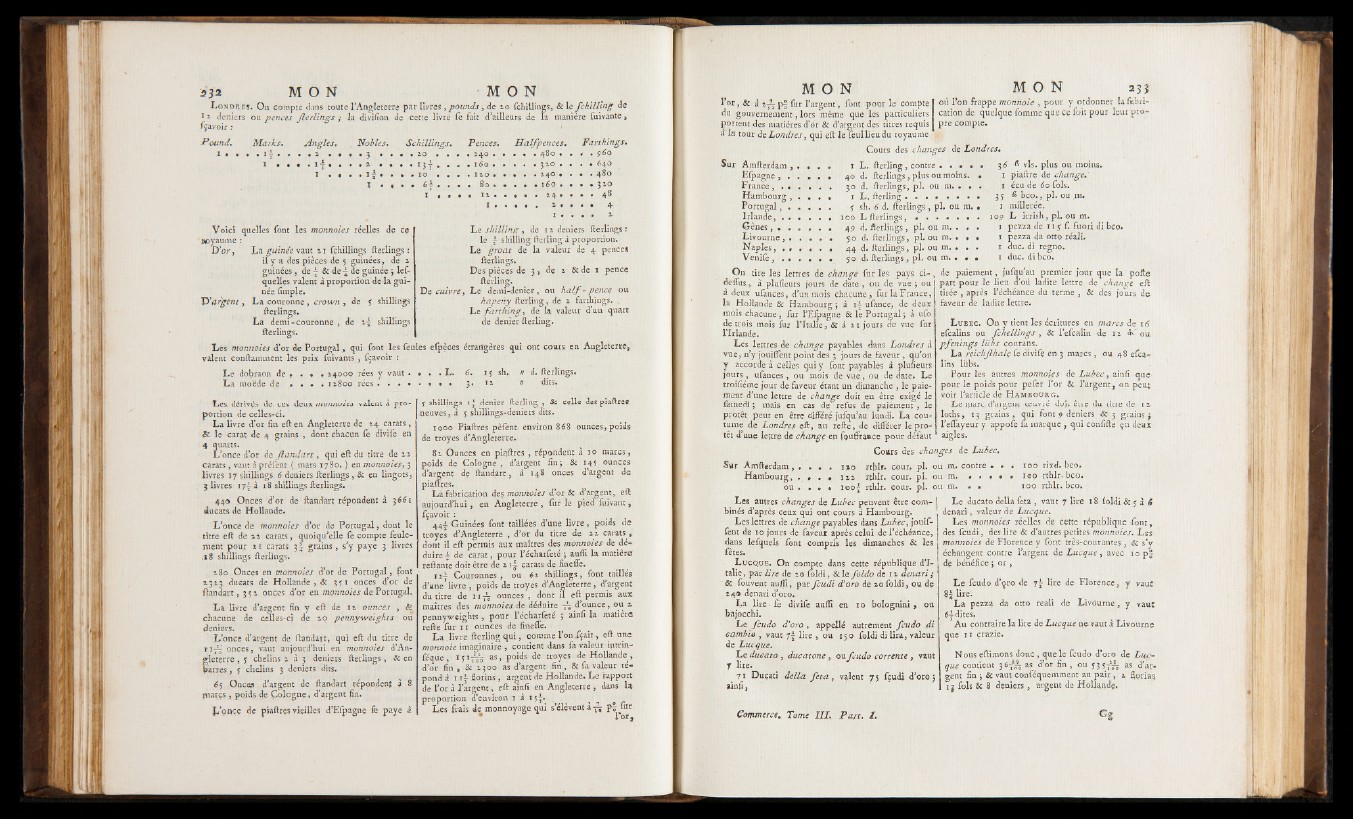 232 MON MON
LONDRES. On compte dans toute l'Angleterre par livres, pounds, de 20 schillings, & le schilling de
12 deniers ou pences sterlings ; la division de cette livre se fait d'ailleurs de la manière suivante,
sçavoir :
Pound. Marks. Angles. Nobles. Schillings. Pences. Halfpences. Farthings.
1 . . . . 1½ . . . . 2 . . . . 3 . . . . 20 . . . . 240 . . . . . 480 . . . . 960
1 . . . . 1⅓ . . . . 2 . . . . 13⅓ . . . . 160 . . . . . 320 . . . . 640
1 . . . . 1½ . . . . 10 . . . . 120 . . . . . 240 . . . . 480
1 . . . . 6⅔ . . . . 80 . . . . . 160 . . . . 320
1 . . . . 12 . . . . . 24 . . . . 48
1 . . . . . 2 . . . . 4
1 . . . . 2
Voici quelles sont les monnoies réelles de ce
royaume :
D'or, La guinée vaut 21 schillings sterlings :
il y a des pièces de 5 guinées, de 2
guinées, de ½ & de ¼ de guinée ; les-
quelles valent à proportion de la gui-
née simple.
D'argent, La couronne, crown, de 5 shillings
sterlings.
La demi-couronne, de 2½ shillings
sterlings.
Le shilling, de 12 deniers sterlings :
le ½ shilling sterling à proportion.
Le groat de la valeur de 4 pences
sterlings.
Des pièces de 3, de 2 & de 1 pence
sterling.
De cuivre, Le demi-denier, ou half-pence ou
hapeny sterling, de 2 farthings.
Le farthing, de la valeur d'un quart
de denier sterling.
Les monnoies d'or de Portugal, qui sont les seules espèces étrangères qui ont cours en Angleterre,
valent constamment les prix suivants, sçavoir :
Le dobraon de . . . . 24000 rées y vaut . . . . L. 6. 15 sh. » d. sterlings.
La moëde de . . . . 12800 rées . . . . . . . . 3. 12 » dits.
Les dérivés de ces deux monnoies valent à pro-
portion de celles-ci.
La livre d'or fin est en Angleterre de 24 carats,
& le carat de 4 grains, dont chacun se divise en
4 quarts.
L'once d'or de standart, qui est du titre de 22
carats, vaut à présent ( mars 1780. ) en monnoies, 3
livres 17 shillings 6 deniers sterlings, & en lingots,
3 livres 17½ à 18 shillings sterlings.
440 Onces d'or de standart répondent à 3661
ducats de Hollande.
L'once de monnoies d'or de Portugal, dont le
titre est de 22 carats, quoiqu'elle se compte seule-
ment pour 21 carats 3½ grains, s'y paye 3 livres
18 shillings sterlings.
280 Onces en monnoies d'or de Portugal, font
2323 ducats de Hollande, & 351 onces d'or de
standart, 352 onces d'or en monnoies de Portugal.
La livre d'argent fin y est de 12 ounces, &
chacune de celles-ci de 20 pennyweights ou
deniers.
L'once d'argent de standart, qui est du titre de
11 1/10 onces, vaut aujourd'hui en monnoies d'An-
gleterre, 5 chelins 2 à 3 deniers sterlings, & en
barres, 5 chelins 3 deniers dits.
65 Onces d'argent de standart répondent à 8
marcs, poids de Cologne, d'argent fin.
L'once de piastres vieilles d'Espagne se paye à
5 shillings 1¾ denier sterling, & celle des piastres
neuves, à 5 shillings-deniers dits.
1000 Piastres pèsent environ 868 ounces, poids
de troyes d'Angleterre.
82 Ounces en piastres, répondent à 10 marcs,
poids de Cologne, d'argent fin ; & 145 ounces
d'argent de standart, à 148 onces d'argent de
piastres.
La fabrication des monnoies d'or & d'argent, est
aujourd'hui, en Angleterre, sur le pied suivant,
sçavoir :
44½ Guinées sont taillées d'une livre, poids de
troyes d'Angleterre, d'or du titre de 22 carats,
dont il est permis aux maîtres des monnoies de dé-
duire ⅙ de carat, pour l'écharseté ; aussi la matière
restante doit être de 21⅚ carats de finesse.
12⅖ Couronnes, ou 62 shillings, sont taillés
d'une livre, poids de troyes d'Angleterre, d'argent
du titre de 11 1/10 ounces, dont il est permis aux
maîtres des monnoies de déduire 1/10 d'ounce, ou 2
pennyweights, pour l'écharseté ; ainsi la matière
reste sur 11 ounces de finesse.
La livre sterling qui, comme l'on sçait, est une
monnoie imaginaire, contient dans sa valeur intrin-
sèque, as, poids de troyes de Hollande,
d'or fin, & 2300 as d'argent fin, & sa valeur ré-
pond à florins, argent de Hollande. Le rapport
de l'or à l'argent, est ainsi en Angleterre, dans la
proportion d'environ 1 à
Les frais de monnoyage qui s'élèvent à p% sur
l'or,
MON MON 233
l'or, & à p% sur l'argent, sont pour le compte
du gouvernement, lors même que les particuliers
portent des matières d'or & d'argent des titres requis
à la tour de Londres, qui est le seul lieu du royaume
où l'on frappe monnoie, pour y ordonner la fabri-
cation de quelque somme que ce soit pour leur pro-
pre compte.
Cours des changes de Londres.
Sur Amsterdam, . . . . 1 L. sterling, contre . . . . . 36 ß vls. plus ou moins.
Espagne, . . . . . 40 d. sterlings, plus ou moins. . 1 piastre de change.
France, . . . . . . 30 d. sterlings, pl. ou m. . . . 1 écu de 60 sols.
Hambourg, . . . . 1 L. sterling . . . . . . . . 35 ß bco., pl. ou m.
Portugal, . . . . . 5 sh. 6 d. sterlings, pl. ou m. . 1 millerée.
Irlande, . . . . . . 100 L sterlings, . . . . . . . 109 L icrish, pl. ou m.
Gènes, . . . . . . 49 d. sterlings, pl. ou m. . . . 1 pezza de 115 s. fuori di bco.
Livourne, . . . . . 50 d. sterlings, pl. ou m. . . . 1 pezza da otto réali.
Naples, . . . . . . 44 d. sterlings, pl. ou m. . . . 1 duc. di regno.
Venise, . . . . . . 50 d. sterlings, pl. ou m. . . . 1 duc. di bco.
On tire les lettres de change sur les pays ci-
dessus, à plusieurs jours de date, ou de vue ; ou
à deux usances, d'un mois chacune, sur la France,
la Hollande & Hambourg ; à 1½ usance, de deux
mois chacune, sur l'Espagne & le Portugal ; à uso
de trois mois sur l'Italie, & à 21 jours de vue sur
l'Irlande.
Les lettres de change payables dans Londres à
vue, n'y jouissent point des 3 jours de faveur, qu'on
y accorde à celles qui y sont payables à plusieurs
jours, usances, ou mois de vue, ou de date. Le
troisième jour de faveur étant un dimanche, le paie-
ment d'une lettre de change doit en être exigé le
samedi ; mais en cas de refus de paiement, le
protêt peut en être différé jusqu'au lundi. La cou-
tume de Londres est, au reste, de différer le pro-
têt d'une lettre de change en souffrance pour défaut
de paiement, jusqu'au premier jour que la poste
part pour le lieu d'où ladite lettre de change est
tirée, après l'échéance du terme, & des jours de
faveur de ladite lettre.
LUBEC. On y tient les écritures en marcs de 16
escalins ou schellings, & l'escalin de 12 ₰ ou
pfenings lubs courans.
La reichsthale se divise en 3 marcs, ou 48 esca-
lins lubs.
Pour les autres monnoies de Lubec, ainsi que
pour le poids pour peser l'or & l'argent, on peut
voir l'article de HAMBOURG.
Le marc d'argent œuvré doit être du titre de 12
loths, 13 grains, qui font 9 deniers & 3 grains ;
l'essayeur y appose sa marque, qui consiste en deux
aigles.
Cours des changes de Lubec.
Sur Amsterdam, . . . . 120 rthlr. cour. pl. ou m. contre . . . 100 rixd. bco.
Hambourg, . . . . 122 rthlr. cour. pl. ou m. . . . . . 100 rthlr. bco.
ou . . . . 100¾ rthlr. cour. pl. ou m. . . 100 rthlr. bco.
Les autres changes de Lubec peuvent être com-
binés d'après ceux qui ont cours à Hambourg.
Les lettres de change payables dans Lubec, jouis-
sent de 10 jours de faveur après celui de l'échéance,
dans lesquels sont compris les dimanches & les
fêtes.
LUCQUE. On compte dans cette république d'I-
talie, par lire de 20 soldi, & le soldo de 12 denari ;
& souvent aussi, par scudi d'oro de 20 soldi, ou de
240 denari d'oro.
La lire se divise aussi en 10 bolognini, ou
bajocchi.
Le scudo d'oro, appellé autrement scudo di
cambio, vaut 7½ lire, ou 150 soldi di lira, valeur
de Lucque.
Le ducato, ducatone, ou scudo corrente, vaut
7 lire.
71 Ducati della seta, valent 75 scudi d'oro ;
ainsi,
Le ducato della seta, vaut 7 lire 18 soldi & 5 à 6
denari, valeur de Lucque.
Les monnoies réelles de cette république sont,
des scudi, des lire & d'autres petites monnoies. Les
monnoies de Florence y sont très-courantes, & s'y
échangent contre l'argent de Lucque, avec 10 p%
de bénéfice ; or,
Le scudo d'oro de 7½ lire de Florence, y vaut
8¼ lire.
La pezza da otto reali de Livourne, y vaut
6⅓ dites.
Au contraire la lire de Lucque ne vaut à Livourne
que 11 crazie.
Nous estimons donc, que le scudo d'oro de Luc-
que contient as d'or fin, ou as d'ar-
gent fin ; & vaut conséquemment au pair, 2 florins
13 sols & 8 deniers, argent de Hollande.
Commerce. Tome III. Part. I. Gg